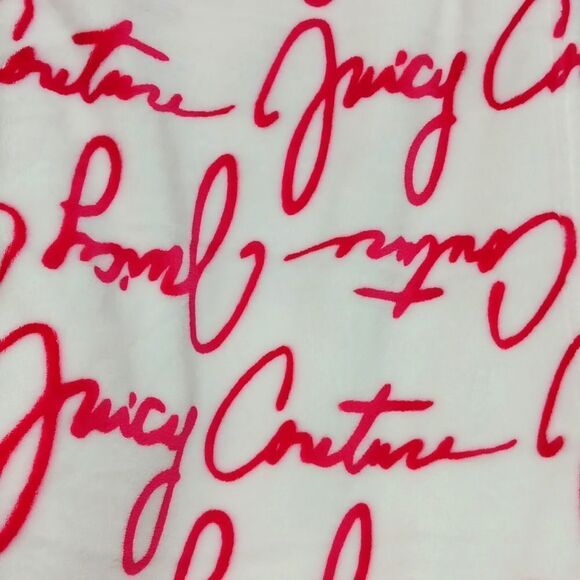 Couture Juicy Co
Juicy Couture
Juicy Couture